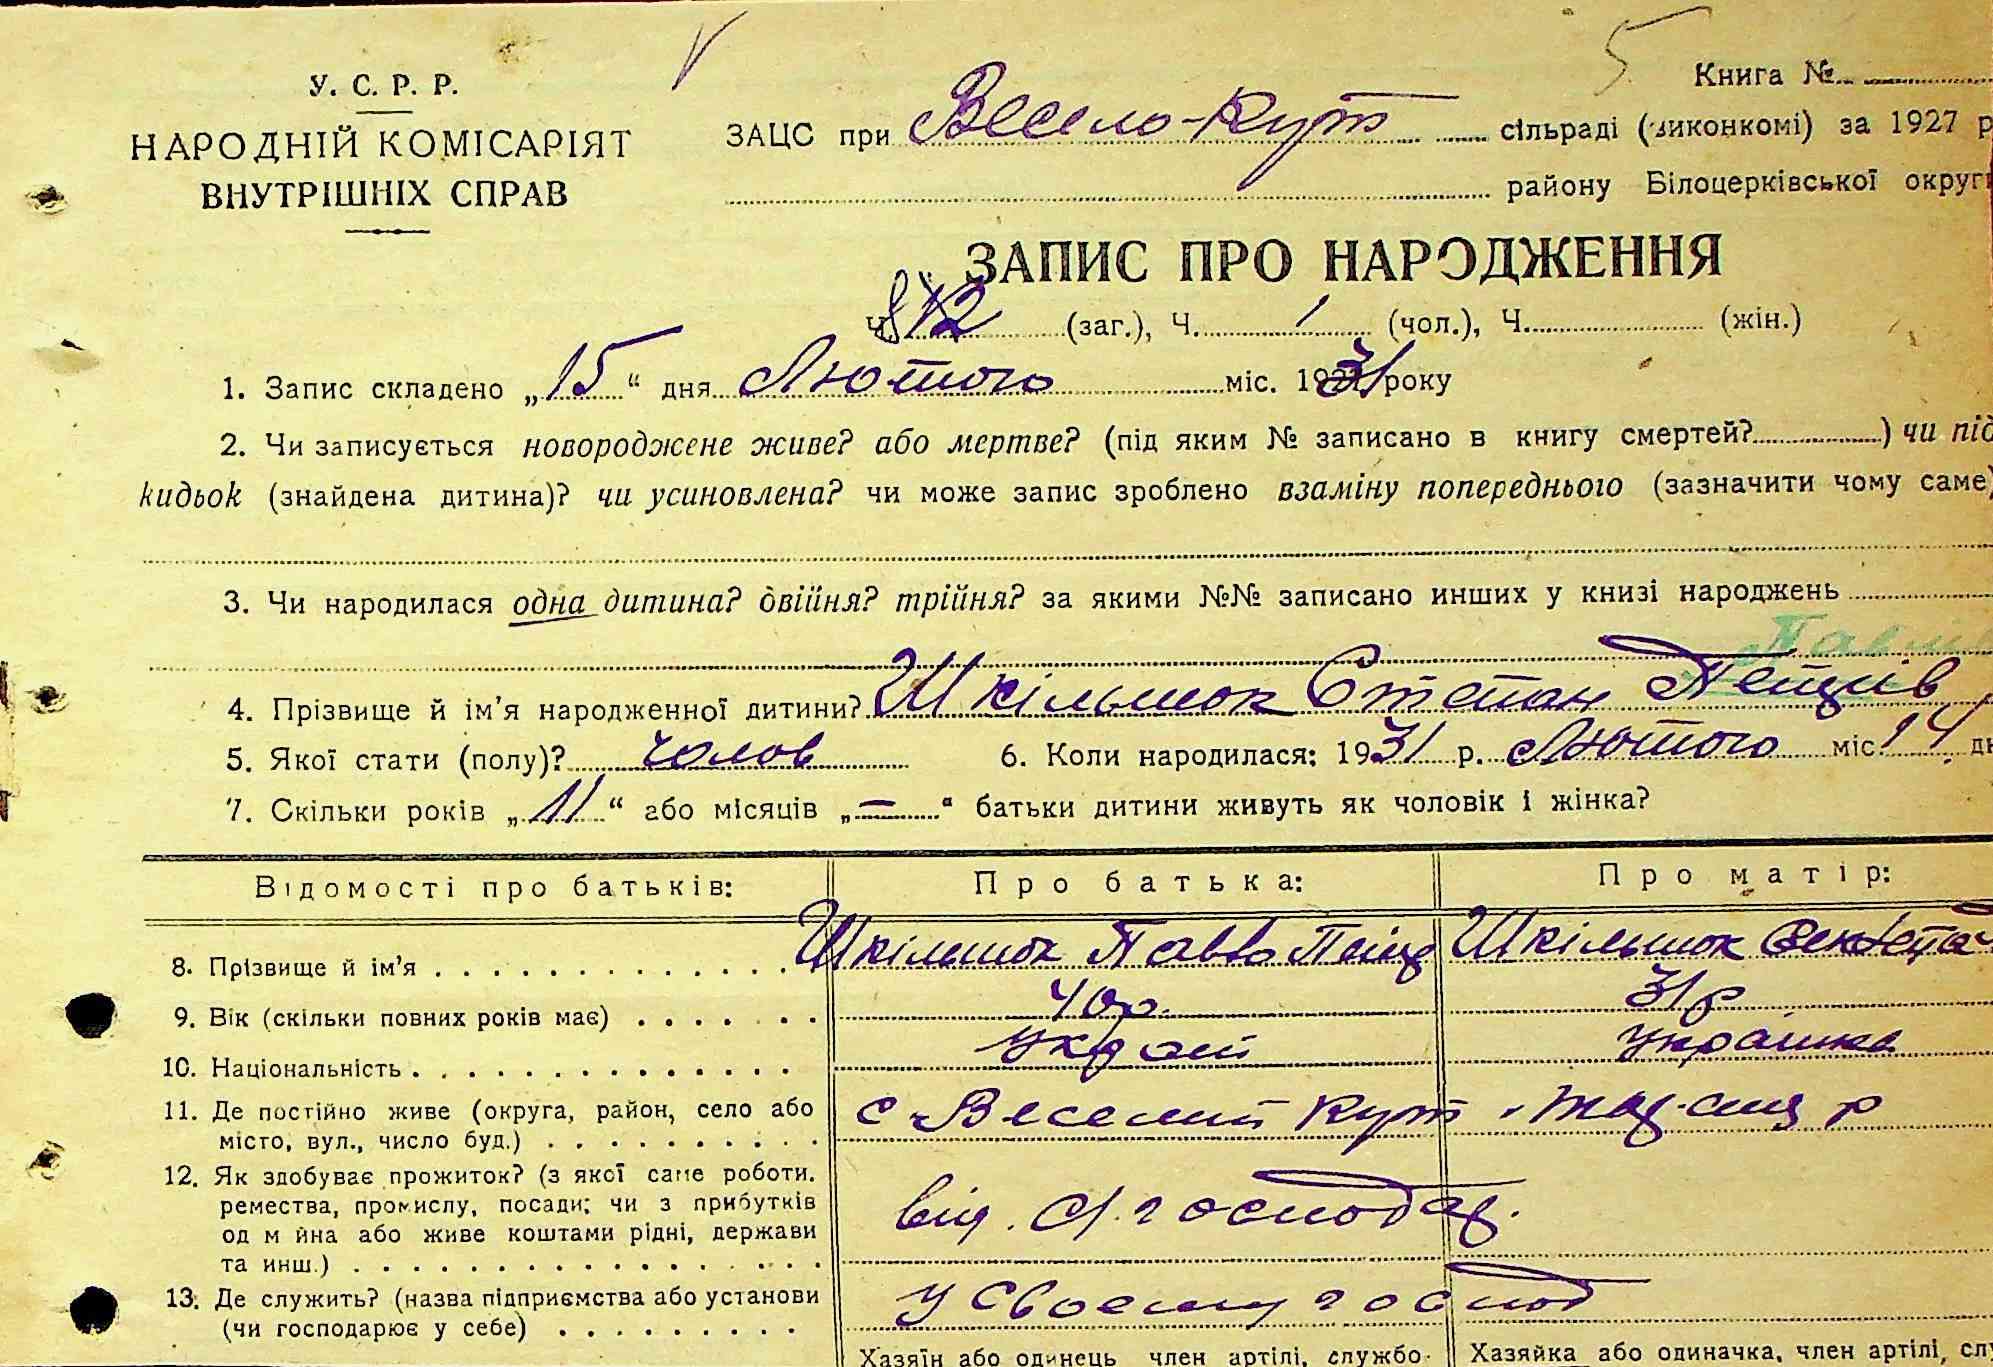 5
Книга №
У. С. Р. Р.
НАРОДНІЙ КОМІСАРІЯТ
ВНУТРІШНІХ СПРАВ
ЗАЦС при Весело-Кут сільраді (виконкомі) за 1927 р
району Білоцерківської округи
ЗАПИС ПРО НАРОДЖЕННЯ
Ч. 12 (заг.), Ч. 1 (чол.), Ч. (жін.)
1. Запис складено „15“ дня Лютого міс. 1931 року
2. Чи записується новороджене живе? або мертве? (під яким № записано в книгу смертей?) чи під
кидьок (знайдена дитина)? чи усиновлена? чи може запис зроблено взаміну попереднього (зазначити чому саме)
3. Чи народилася одна дитина? двійня? трійня? за якими №№ записано инших у книзі народжень
4. Прізвище й ім’я народженної дитини? Шкільнюк Степан
5. Якої стати (полу)? чолов 6. Коли народилася: 1931 р. Лютого міс 14 дн
7. Скільки років „11“ або місяців „—“ батьки дитини живуть як чоловік і жінка?
Відомості про батьків: Про батька: Про матір:
8. Прізвище й ім’я Шкільнюк Павло Шкільнюк
9. Вік (скільки повних років має) 40р. 31р
10. Національність Украї Українка
11. Де постійно живе (округа, район, село або
місто, вул., число буд.) с Веселий Кут р
12. Як здобуває прожиток? (з якої саме роботи.
ремества, промислу, посади; чи з прибутків
од майна або живе коштами рідні, держави
та инш.) від. с/.господар.
13. Де служить? (назва підприємства або установи
(чи господарює у себе) у своєму господ
Хазяїн або одинець член артілі, службо-
Хазяйка або одиначка, член артілі, слу